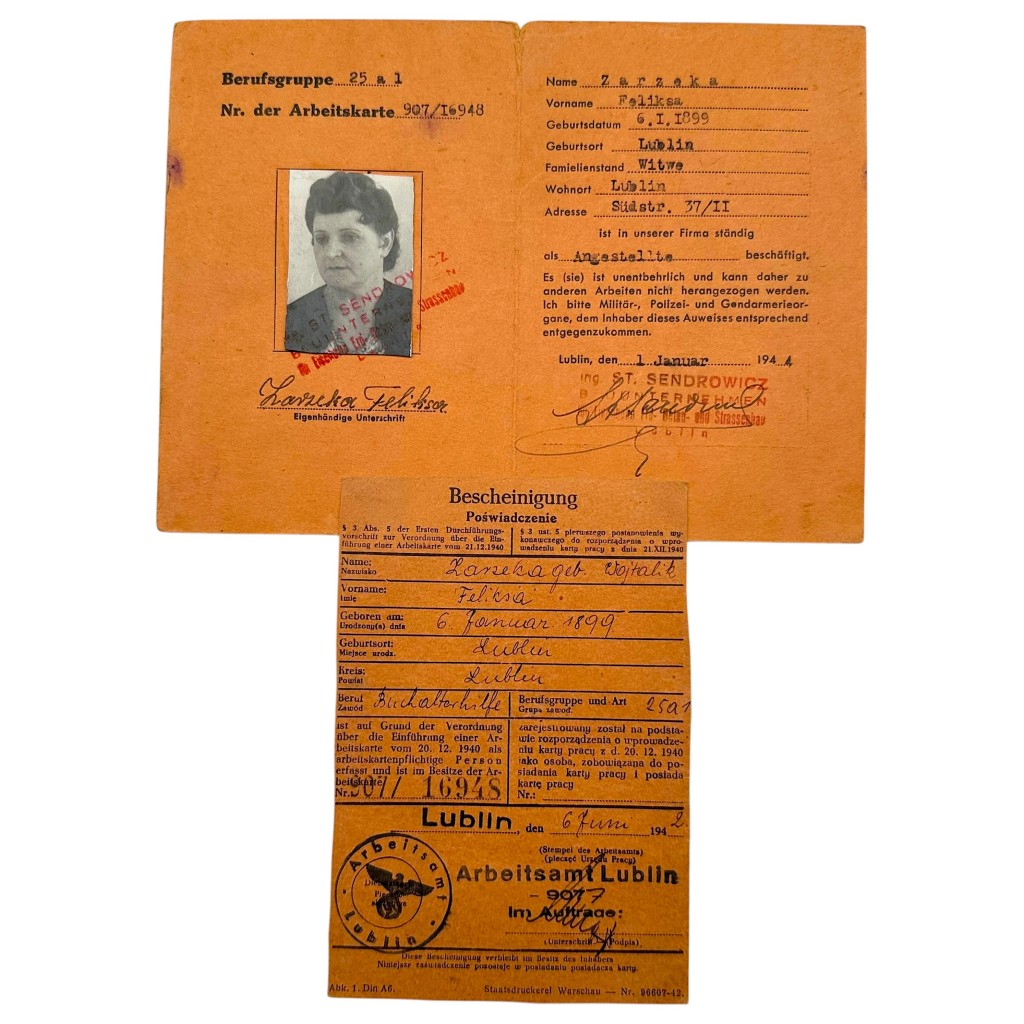 Berufsgruppe 25 a 1
Nr. der Arbeitskarte 907/I6948
ST. SENDROWICZ
Strassenbau
Zarzeka Feliksa
Eigenhändige Unterschrift
Name Zarzeka
Vorname Feliksa
Geburtsdatum 6.I.I899
Geburtsort Lublin
Familienstand Witwe
Wohnort Lublin
Adresse Südstr. 37/II
ist in unserer Firma ständig
als Angestellte beschäftigt.
Es (sie) ist unentbehrlich und kann daher zu
anderen Arbeiten nicht herangezogen werden.
Ich bitte Militär-, Polizei- und Gendarmerieor-
gane, dem Inhaber dieses Auweises entsprechend
entgegenzukommen.
Lublin, den 1 Januar 1944
Ing. ST. SENDROWICZ
UNTERNEHMEN
Beton- und Strassenbau
Lublin
Bescheinigung
Poświadczenie
§ 3 Abs. 5 der Ersten Durchführungs-
vorschrift zur Verordnung über die Ein-
führung einer Arbeitskarte vom 21.12.1940
§ 3 ust. 5 pierwszego postanowienia wy-
konawczego do rozporządzenia o wpro-
wadzeniu karty pracy z dnia 21.XII.1940
Name: Zarzeka geb. Wojtalik
Nazwisko
Vorname: Feliksa
Imię
Geboren am: 6. Januar 1899
Urodzony(a) dnia
Geburtsort: Lublin
Miejsce urodz.
Kreis: Lublin
Powiat
Beruf Buchalterhilfe
Zawód
Berufsgruppe und Art 25a1
Grupa zawod.
ist auf Grund der Verordnung
über die Einführung einer Ar-
beitskarte vom 20. 12. 1940 als
arbeitskartenpflichtige Person
erfasst und ist im Besitze der Ar-
beitskarte
Nr. 907/ 16948
zarejestrowany został na podsta-
wie rozporządzenia o wprowadze-
niu karty pracy z d. 20. 12. 1940
jako osoba, zobowiązana do po-
siadania karty pracy i posiada
kartę pracy
Nr.:
Lublin, den 6 Juni 1942.
(Stempel des Arbeitsamts)
(pieczęć Urzędu Pracy)
Arbeitsamt Lublin
Arbeitsamt Lublin
- 907
Im Auftrage:
(Unterschrift - Podpis)
Diese Bescheinigung verbleibt im Besitz des Inhabers
Niniejsze zaświadczenie pozostaje w posiadaniu posiadacza karty.
Abk. 1. Din A6.
Staatsdruckerei Warschau — Nr. 96607-42.